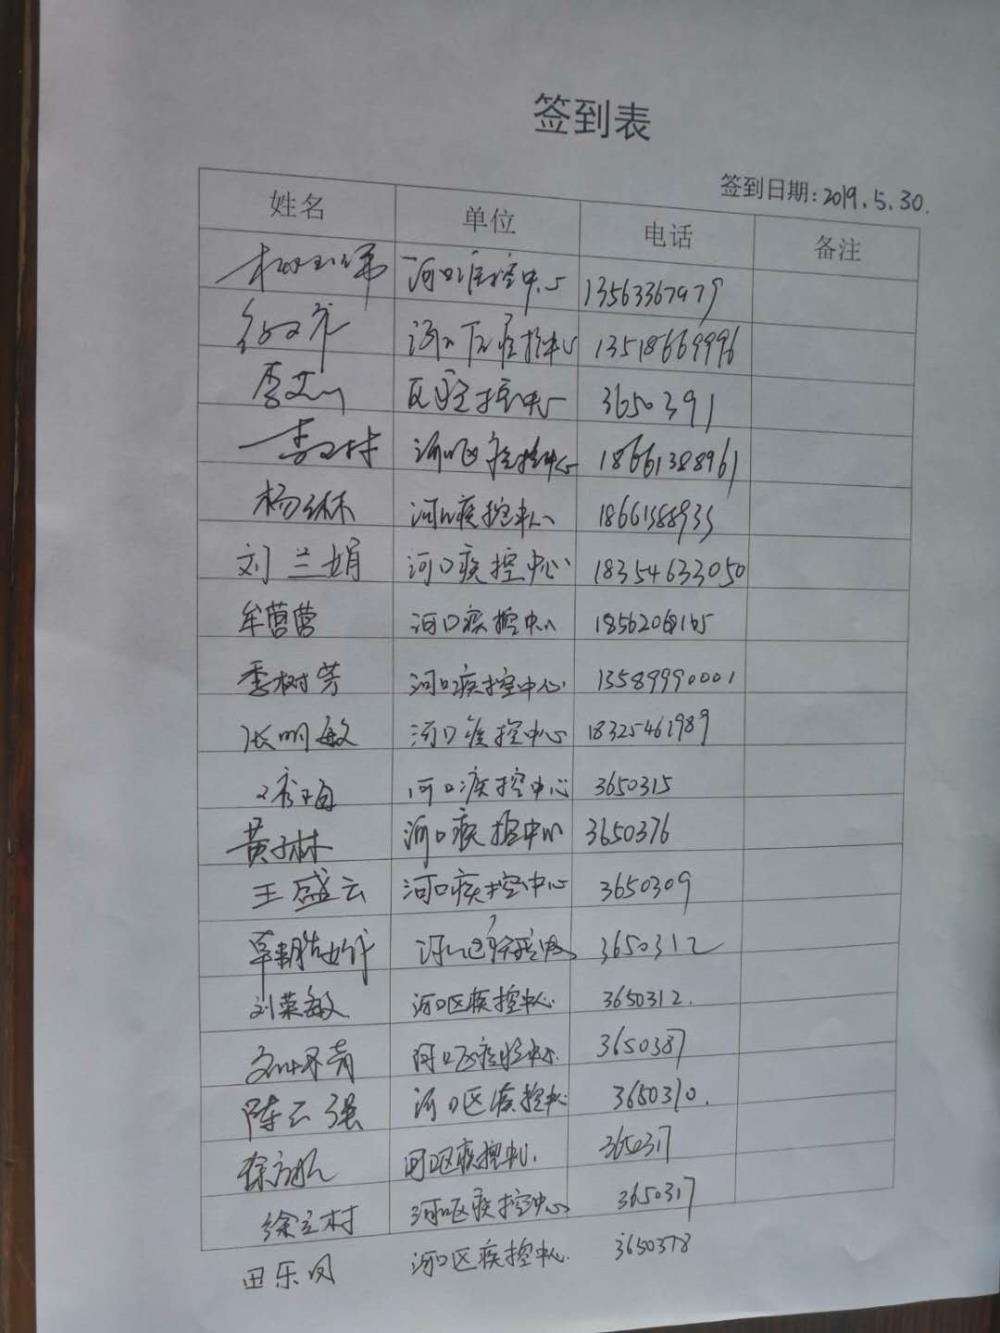 签到表
签到日期:2019.5.30.
姓名 单位 电话 备注
河口疾控中心 13563367979
河口区疾控中心 13518669996
李 区疾控中心 3650391
李 河口区疾控中心 18661388961
杨 河口疾控中心 18661388935
刘兰娟 河口疾控中心 18354633050
牟营营 河口疾控中心
季树芳 河口疾控中心 13589990001
张明敏 河口疾控中心 18325461989
河口疾控中心 3650315
黄子林 河口疾控中心 3650376
王盛云 河口疾控中心 3650309
3650312
刘荣敏 河口区疾控中心 3650312.
河口区疾控中心. 3650387
陈云强 河口区疾控中心 3650310.
徐 河口区疾控中心. 3650317
徐立村 河口区疾控中心 3650317
田乐凤 河口区疾控中心. 3650378